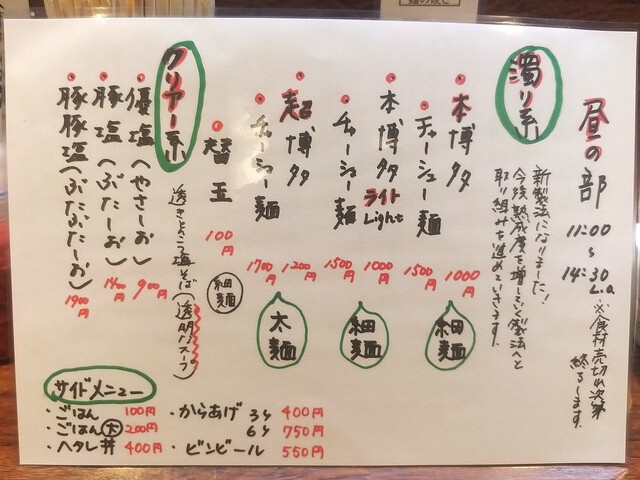 昼の部
11:00
〜
14:30
L.o
※食材売切れ次第
終了します。
濁り系
新製法になりました！
今後熟成度を増していく製法へと
取り組みを進めていきます。
・本博多 1000円
・チャーシュー麺 1500円
細麺
・本博多ライト Light 1000円
・チャーシュー麺 1500円
細麺
・超博多 1200円
・チャーシュー麺 1700円
太麺
・替玉 100円
細麺
クリアー系
透きとおる塩そば(透明スープ)
・優塩(やさしーお) 900円
・豚塩(ぶたしーお) 1400円
・豚豚塩(ぶたぶたしーお) 1900円
サイドメニュー
・ごはん 100円
・ごはん 大 200円
・ヘタレ丼 400円
・からあげ 3ヶ 400円
6ヶ 750円
・ビンビール 550円